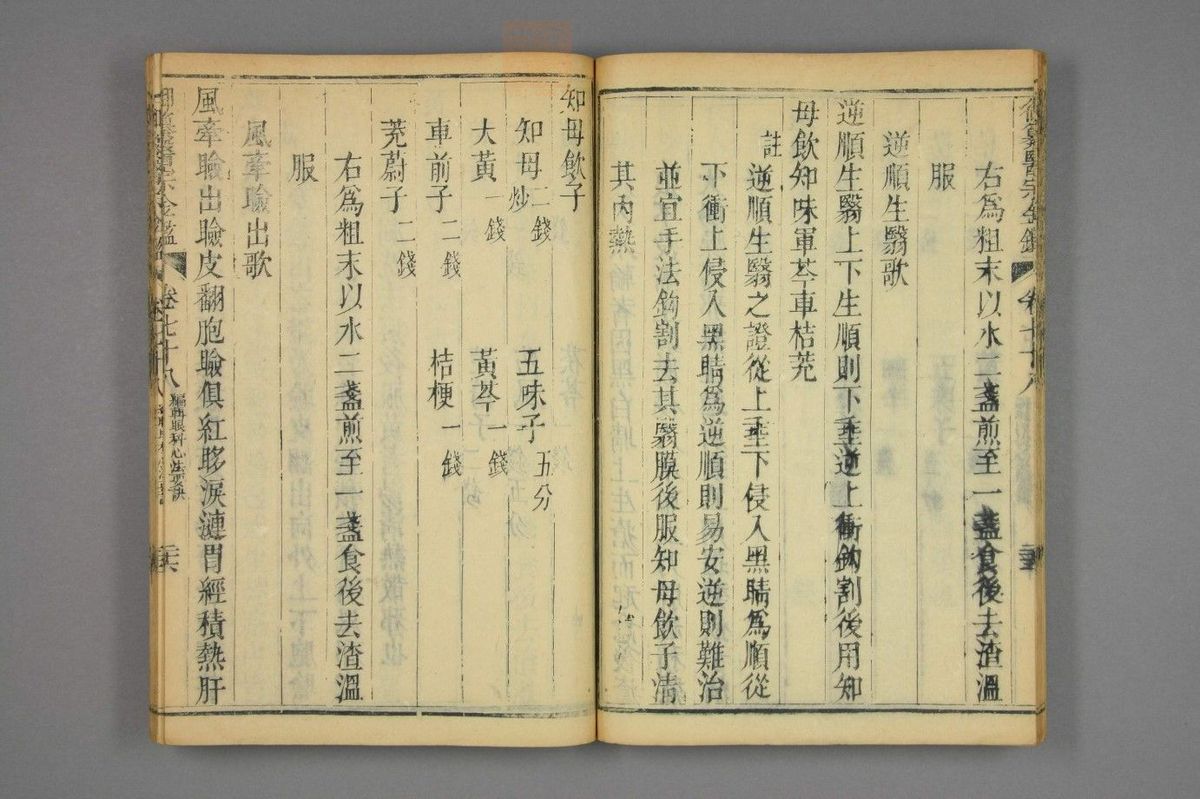 右爲粗末以水二盞煎至一盞食後去渣溫
服
逆順生翳歌
逆順生翳上下生順則下垂逆上衝鈎割後用知
母飲知味軍芩車桔茺
註
逆順生翳之證從上垂下侵入黑睛爲順從
下衝上侵入黑睛爲逆順則易安逆則難治
並宜手法鈎割去其翳膜後服知母飲子清
其內熱
知母飲子
知母炒二錢 五味子五分
大黃一錢 黃芩一錢
車前子二錢 桔梗一錢
茺蔚子二錢
右爲粗末以水二盞煎至一盞食後去渣溫
服
風牽瞼出歌
風牽瞼出瞼皮翻胞瞼俱紅眵淚漣胃經積熱肝
卷七十八
編輯眼科心法要訣